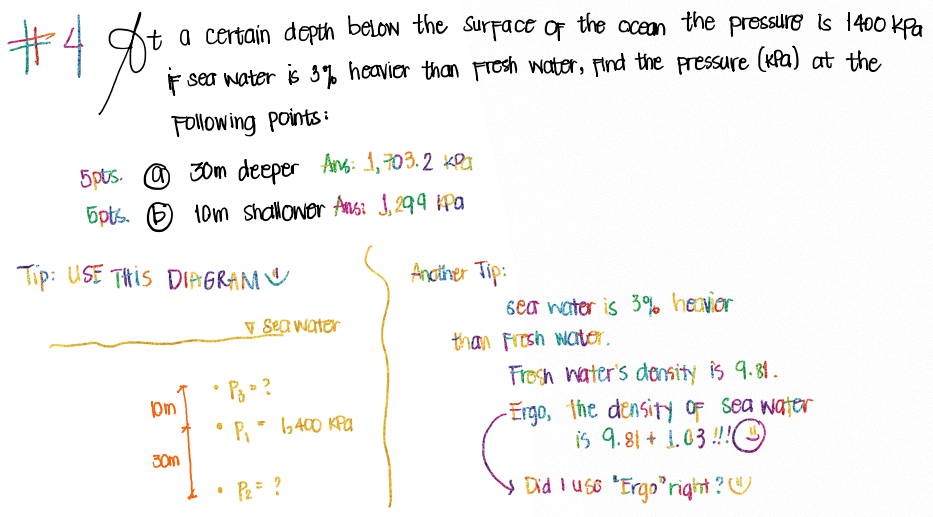 #4 At a certain depth below the surface of the ocean the pressure is 1400 kPa
if sea water is 3% heavier than fresh water, find the pressure (kPa) at the
following points:
5pts. (a) 30m deeper Ans: 1,703.2 kPa
5pts. (b) 10m shallower Ans: 1,299 kPa
Tip: USE THIS DIAGRAM
▽ sea water
10m
• P₃ = ?
• P₁ = 1,400 kPa
30m
• P₂ = ?
Another Tip:
sea water is 3% heavier
than fresh water.
Fresh water's density is 9.81.
Ergo, the density of sea water
is 9.81 + 1.03 !!!
Did I use "Ergo" right?